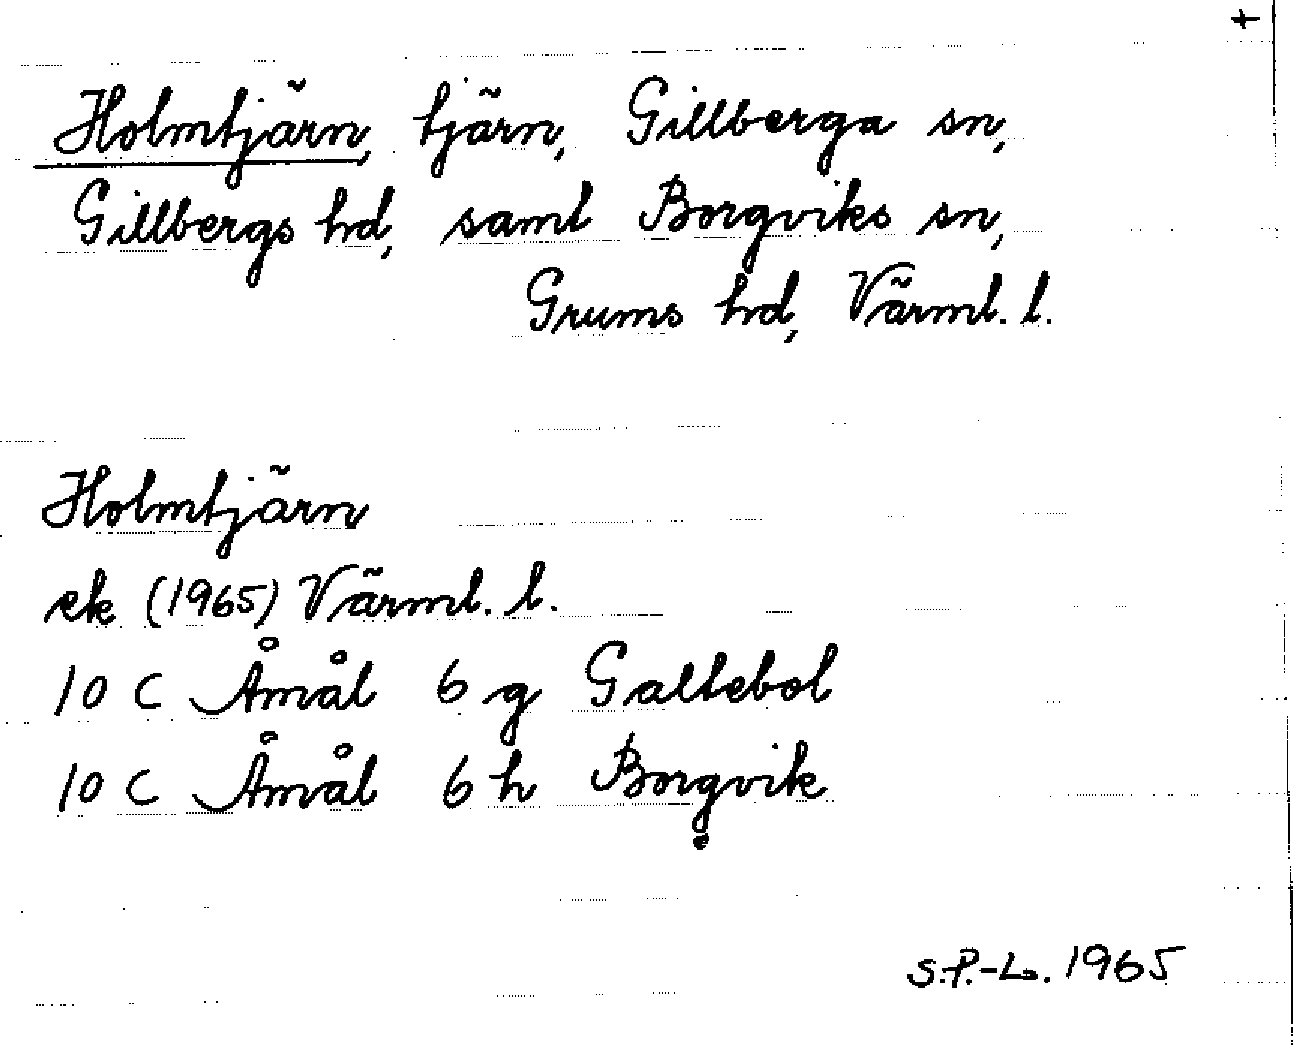 +
Holmtjärn, tjärn, Gillberga sn,
Gillbergs hd, samt Borgviks sn,
Grums hd, Värml. l.
Holmtjärn
ek (1965) Värml. l.
10 C Åmål 6 g Galtebol
10 C Åmål 6 h Borgvik
S.P.-L. 1965